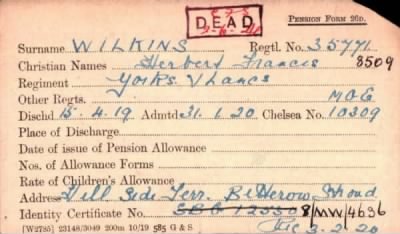 DEAD PENSION FORM 26D.
Surname WILKINS Regtl. No. 35771
Christian Names Herbert Francis 8509
Regiment Yorks & Lancs
Other Regts. M.G.C
Dischd 15.4.19 Admtd 31.1.20 Chelsea No. 10309
Place of Discharge
Date of issue of Pension Allowance
Nos. of Allowance Forms
Rate of Children's Allowance
Address Hill Side Terr. Stroud
Identity Certificate No. 8/MW/4636
[W2785] 23148/3049 200m 10/19 585 G & S 3.2.20